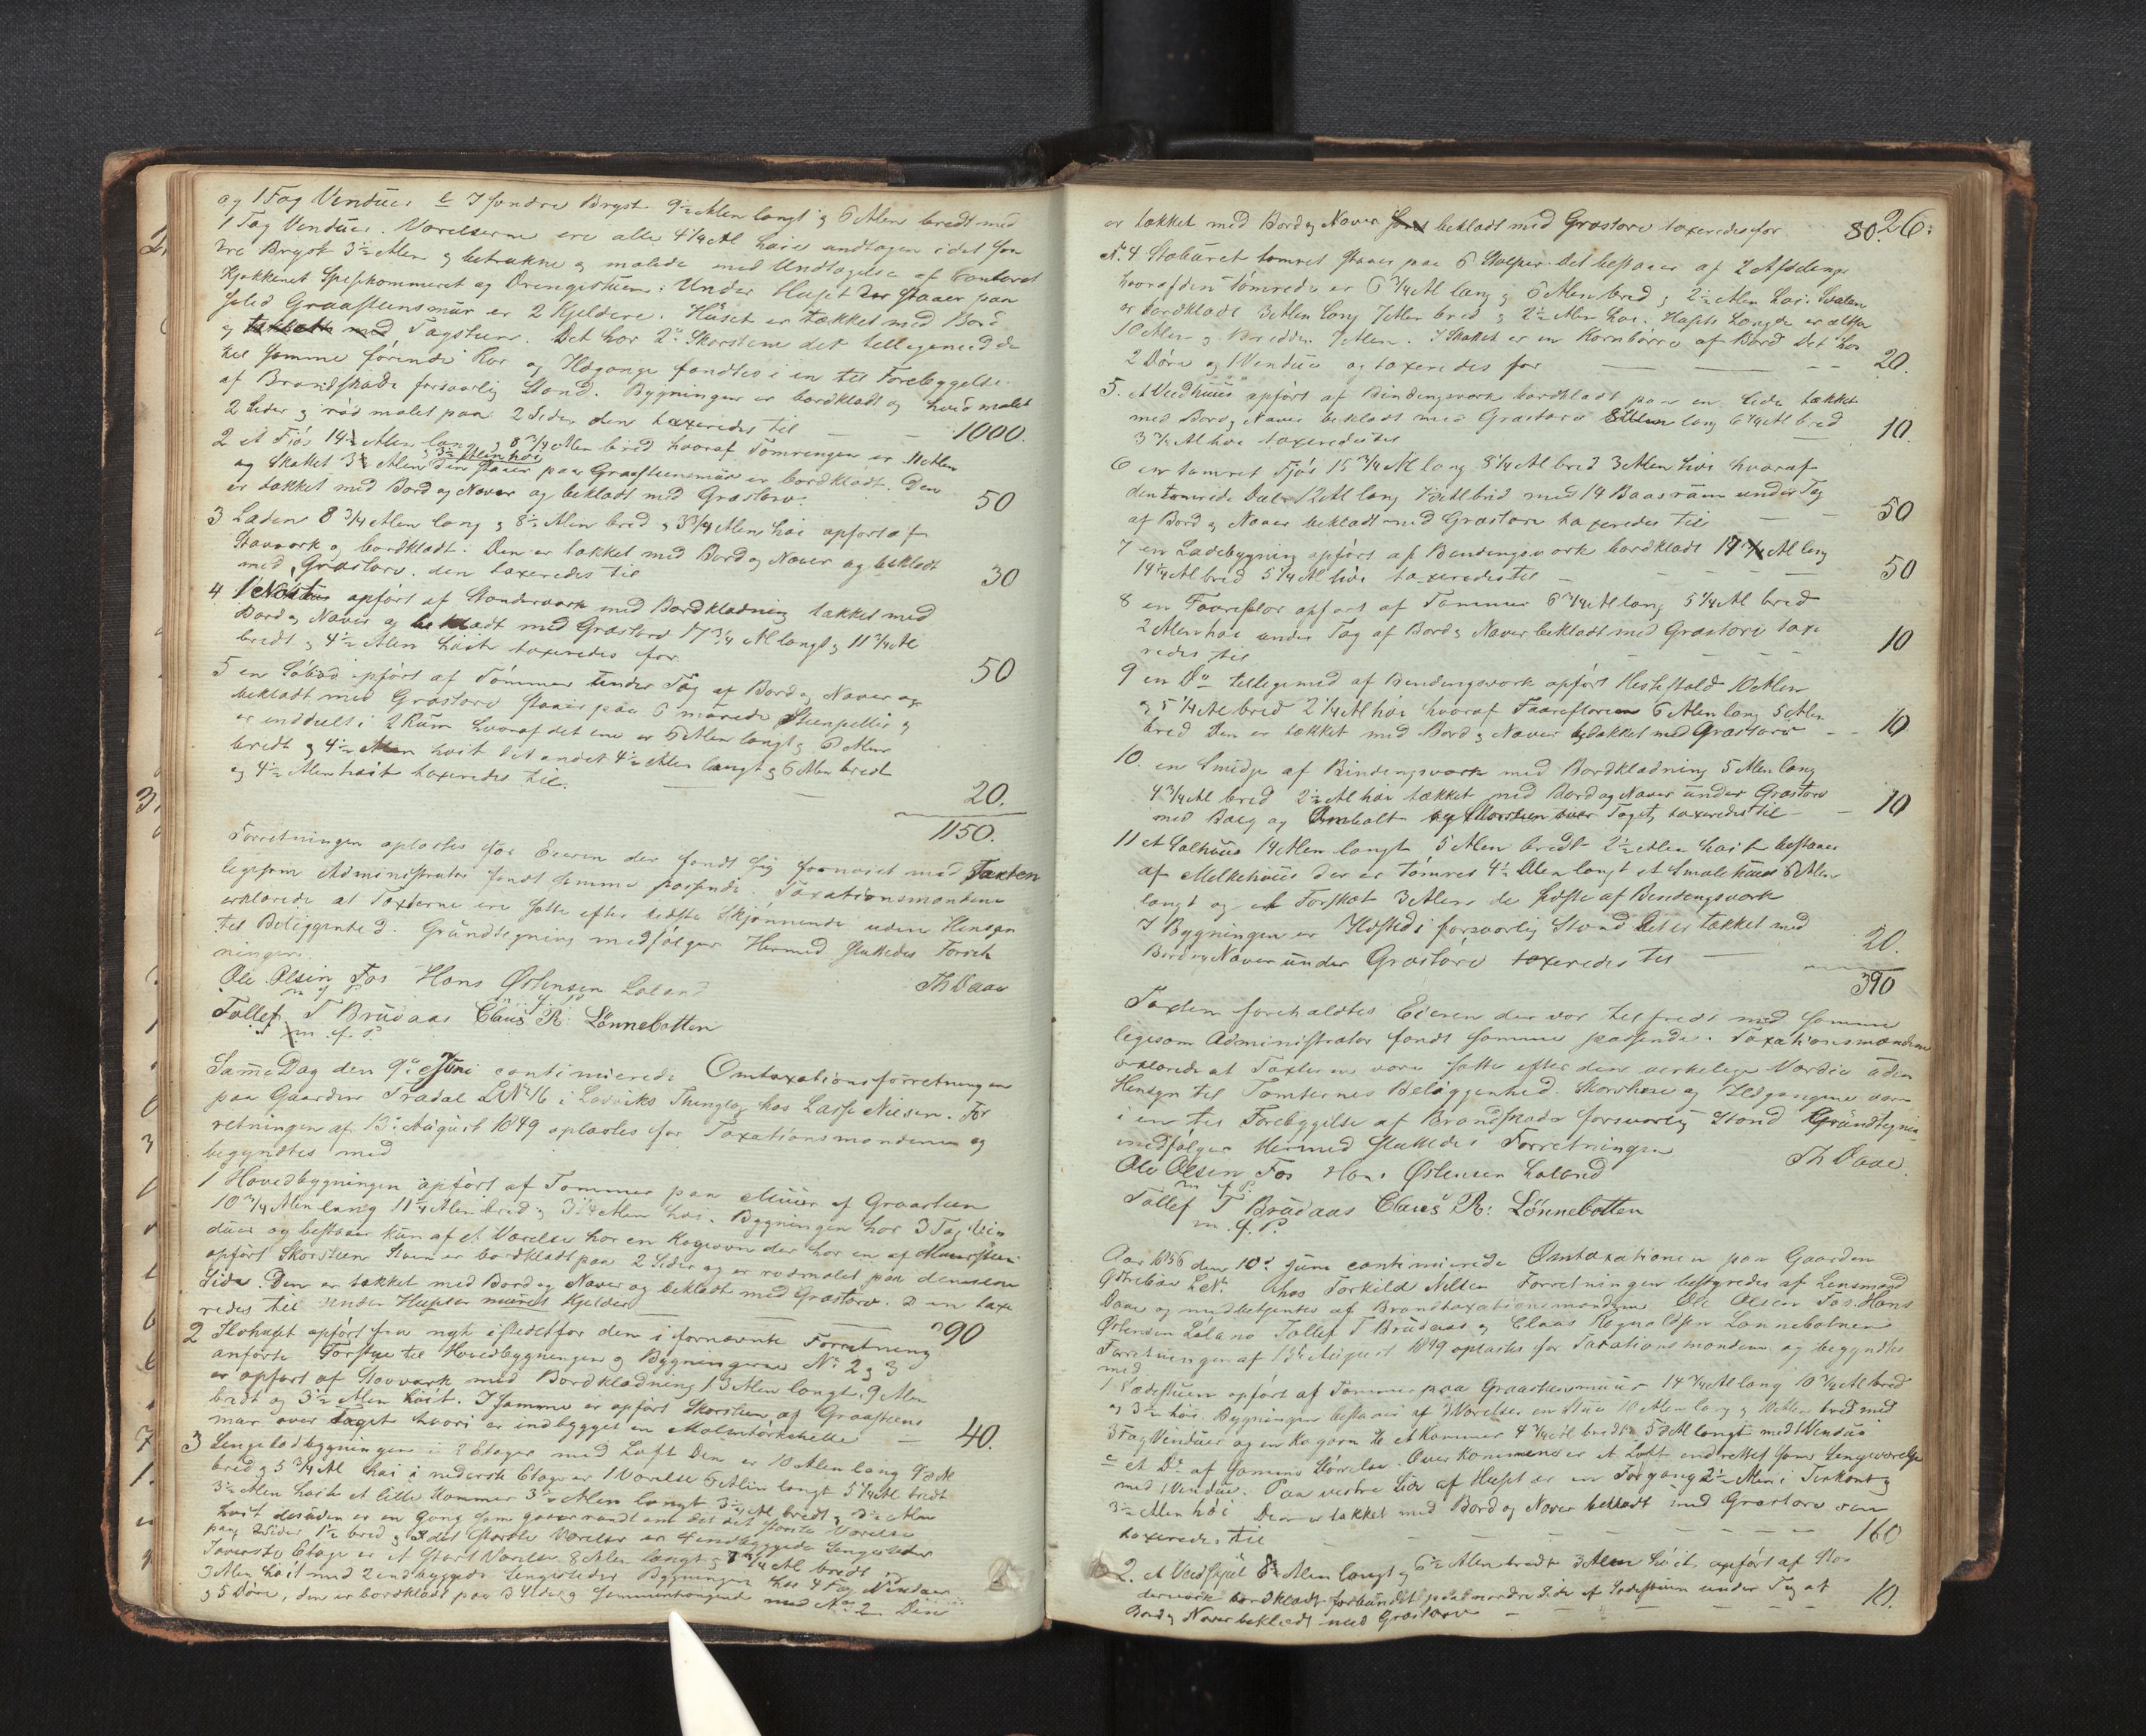 og 1 Fag Venduer e I søndre Bryst 9½ Alen langt og 6 Alen bredt med
1 Fag Venduer. Værelserne ere alle 4¼ Al høie undtagen i det søn
dre Bryst 3½ Alen og betrukne og malede med Undtagelse af Contoret
Kjøkkenet Spiskommeret og Drengestuen. Under Huset der staaer paa
solid Graasteensmur er 2 Kjeldere. Huset er tækket med Bord
og Tagsteen. Det har 2de Skorstene det tilligemed de
til samme førende Rør og Ildgange fandtes i en til Forebyggelse
af Brandskade forsvarlig Stand. Bygningen er bordklædt og hvid malet
2 Sider og rød malet paa 2 Sider, den taxeredes til — — 1000.
2 et Fjøs 14½ Alen lang og 8¾ Alen bred hvoraf Tømringen er 11 Alen
3½ Alen høi
og Skallet 3½ Alen den staaer paa Graasteensmuur er bordklædt. Den
er tækket med Bord og Næver og beklædt med Græstørv. 50
3 Laden 8¾ Alen lang og 8½ Alen bred og 3¾ Alen høi opført af
Stavværk og bordklædt. Den er tækket med Bord og Næver og beklædt
med Græstørv. den taxeredes til 30
4 1 Nøstus opført af Stenderværk med Bordklædning tækket med
Bord og Næver og beklædt med Græstørv 17¾ Al langt og 11¾ Al
bredt og 4½ Alen høit taxeredes for 50
5 en Søbod opført af Tømmer under Tag af Bord og Næver og
beklædt med Græstørv staaer paa 6 murede Steenpeller og
er inddeelt i 2 Rum hvoraf det ene er 6 Alen langt og 6 Alen
bredt og 4½ Alen høit det andet 4½ Alen langt og 6 Alen bredt
og 4½ Alen høit taxeredes til. — — 20.
1150.
Forretningen oplæstes for Eieren der fandt sig fornøiet med Taxten
legesom Administrator fandt samme passende. Taxationsmændene
erklærede at Taxterne ere satte efter bedste Skjønnende uden Hensyn
til Beliggenhed. Grundtegning medfølger Hermed sluttedes Forret
ningen.
Ole Olsen Fos Hans Østensen Løland Th Daae
m. f. P.
Tollef T Brudaas Claus R: Lønnebotten
m. f. P.
Samme Dag den 9de Juni contimierede Omtaxationsforretningen
paa Gaarden Tradal LNr 16 i Ladviks Thinglag hos Lasse Nielsen. For
retningen af 13de August 1849 oplæstes for Taxationsmændene og
begyndtes med
1 Hovedbygningen opført af Tømmer paa Muur af Graasteen
10¾ Alen lang 11¼ Alen bred og 3¼ Alen høi. Bygningen har 3 Fag Vin
duer og bestaaer kun af et Værelse har en Kogeovn der har en af Muursteen
opført Skorsteen Stuen er bordklædt paa 2 Sider og er rødmalet paa den ene
Side. Den er tækket med Bord og Næver og beklædt med Græstørv. Den taxe
redes til under Huset er muret Kjelder — — 90
2 Ildhuset opført fra nyt istedetfor den i fornævnte Forretning
anførte Forstue til Hovedbygningen og Bygningerne No 2 og 3
er opført af Stovværk med Bordklædning 13 Alen langt, 9 Alen
bredt og 3½ Alen høit. I samme er opført Skorsteen af Graasteens
mur over Taget hvori er indbygget en Malmtørkehelle — 40.
3 Sengebodbygningen i 2 Etager med Loft Den er 10 Alen lang 9½ Al
bred og 5¾ Al høi i nederste Etage er 1 Værelse 6 Alen langt 5¼ Al bredt
3½ Alen høit et lille Kammer 3½ Alen langt 3¼ Al bredt og 3½ Alen
høit desuden er en Gang som gaaer rundt om det det største Værelse
paa 2 Sider 1½ bred og I det største Værelse er 4 indbyggede Sengesteder
I øverste Etage er et stort Værelse 8 Alen langt og 7¼ Al bredt
3 Alen høit med 2 indbyggede Sengesteder Bygningen har 4 Fag Vinduer
og 5 Døre, den er bordklædt paa 3 Sider og sammenhængende med No 2 Den
26.
er tækket med Bord og Næver beklædt med Græstørv taxeredes for 80.
N. 4 Staburet tømret staaer paa 6 Stolper. Det bestaaer af 2 Afdelinger
hvoraf den tømrede er 6¾ Al lang og 6 Alen bred og 2½ Alen høi. Svalen
er bordklædt 3 Alen lang 7 Alen bred og 2½ Alen høi. Husets Længde er altsaa
10 Alen og Bredden 7 Alen. I Skallet er en Kornbørre af Bord Det har
2 Døre og 1 Vindue og taxeredes for — — — 20.
5. et Vedhuus opført af Bindingsværk bordklædt paa en Side tækket
med Bord og Næver beklædt med Græstørv 8 Alen lang 6¼ Al bred
3¼ Al høi taxeredes til — 10.
6 en tømret Fjøs 15¾ Al lang 8¼ Al bred 3 Alen høi hvoraf
den tømrede Deel 12 Al lang 7½ Al bred med 14 Baasrum under Tag
af Bord og Næver beklædt med Græstørv taxeredes til — — 50
7 en Ladebygning opført af Bendingsværk bordklædt 19 Al lang
14¼ Al bred 5¼ Al høi taxeredes til — — — — 50
8 en Faareflor opført af Tømmer 6¾ Al lang 5¼ Al bred
2 Alen høi under Tag af Bord og Næver beklædt med Græstørv taxe
redes til — — — — 10
9 en Do tilligemed af Bendingsværk opført Hestestald 10 Alen
og 5¼ Al bred 2¼ Al høi hvoraf Faarefloren 6 Alen lang 5 Alen
bred Den er tækket med Bord og Næver og lækket med Græstørv — — 10
10. en Smidje af Bindingsværk med Bordklædning 5 Alen lang
4¾ Al bred 2½ Al høi tækket med Bord og Næver under Græstørv
med Bælg og Ambolt og Skorsteen over Taget, taxeredes til — — 10
11 et Qalhuus 14 Alen langt 5 Alen bredt 2½ Alen høit bestaaer
af Melkehuus der er tømret 4½ Alen langt et Smalehuus 6 Alen
langt og et Forskot 3 Alen de sidste af Bendingsværk
I Bygningen er Ildsted i forsvarlig Stand Det er tækket med
Bord og Næver under Græstørv taxeredes til — 20.
390
Taxten foreholdtes Eieren der var tilfreds med samme
legesom Administrator fandt samme passende. Taxationsmændene
erklærede at Taxterne vare satte efter deres verkelige Værdie uden
Hensyn til Tomternes Beliggenhed. Skorstene og Ildgangene vare
i en til Forebyggelse af Brandskade forsvarlig Stand Grundtegning
medfølger Hermed sluttedes Forretningen
Ole Olsen Fos Hans Østensen Løland Th Daae.
m. f. P.
Tollef T Brudaas Claus R: Lønnebotten
m. f. P.
Aar 1856 den 10de Juni contimierede Omtaxationen paa Gaarden
LNr. hos Torkild Nilsen Forretningen bestyredes af Lensmand
Daae og medbetjentes af Brandtaxationsmændene Ole Olsen Fos. Hans
Østensen Løland Tollef T Brudaas og Claus Rognaldsen Lønnebotnen
Forretningen af 13de August 1849 oplæstes for Taxationsmændene og begyndtes
med
1 Sædestuen opført af Tømmer paa Graasteensmuur 14¾ Al lang 10¾ Al bred
og 3½ høi. Bygningen bestaaer af 3 Værelser en Stue 10 Alen lang og 10 Alen bred med
3 Fag Venduer og en Kogovn b et Kammer 4¾ Al bredt og 5½ Al langt med 1 Vendue
c et Do af samme Størrelse. Over Kammerne er et Loft indrettet som Sengeværelse
med 1 Vendue. Paa vestre Side af Huset er en Forgang 2½ Alen i Firkant og
3½ Alen høi Den er tækket med Bord og Næver beklædt med Græstørv den
taxeredes til — — — — — — 160
2. et Vedskjul 8½ Alen langt og 6½ Alen bredt 3 Alen høit, opført af Sten
derværk bordklædt forbundet paa nordre Side af Sædestuen under Tag af
Bord og Næver beklædt med Græstørv — — — — 10.